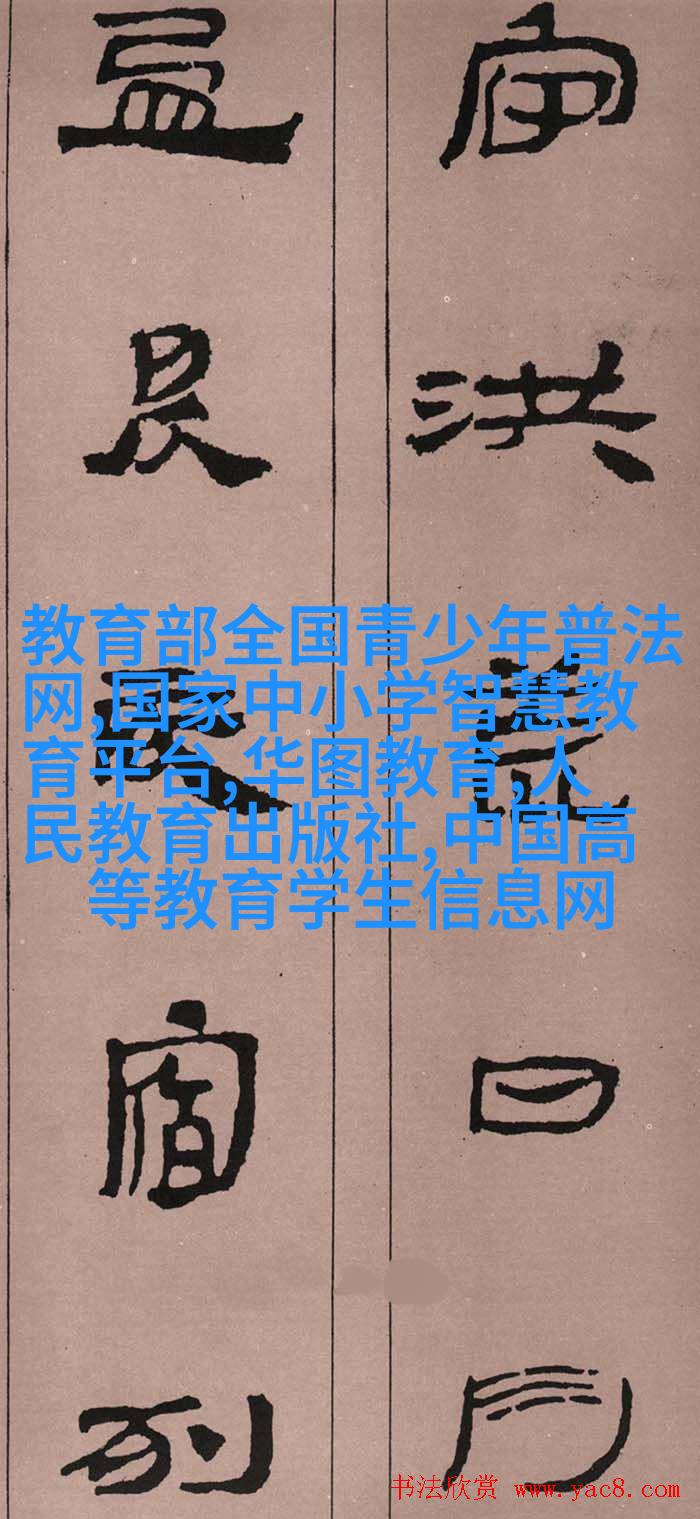 宙洪荒日月
盈昃辰宿列
教育部全国青少年普法
网,国家中小学智慧教
育平台,华图教育,人
民教育出版社,中国高
等教育学生信息网
书法欣赏 www.yac8.com